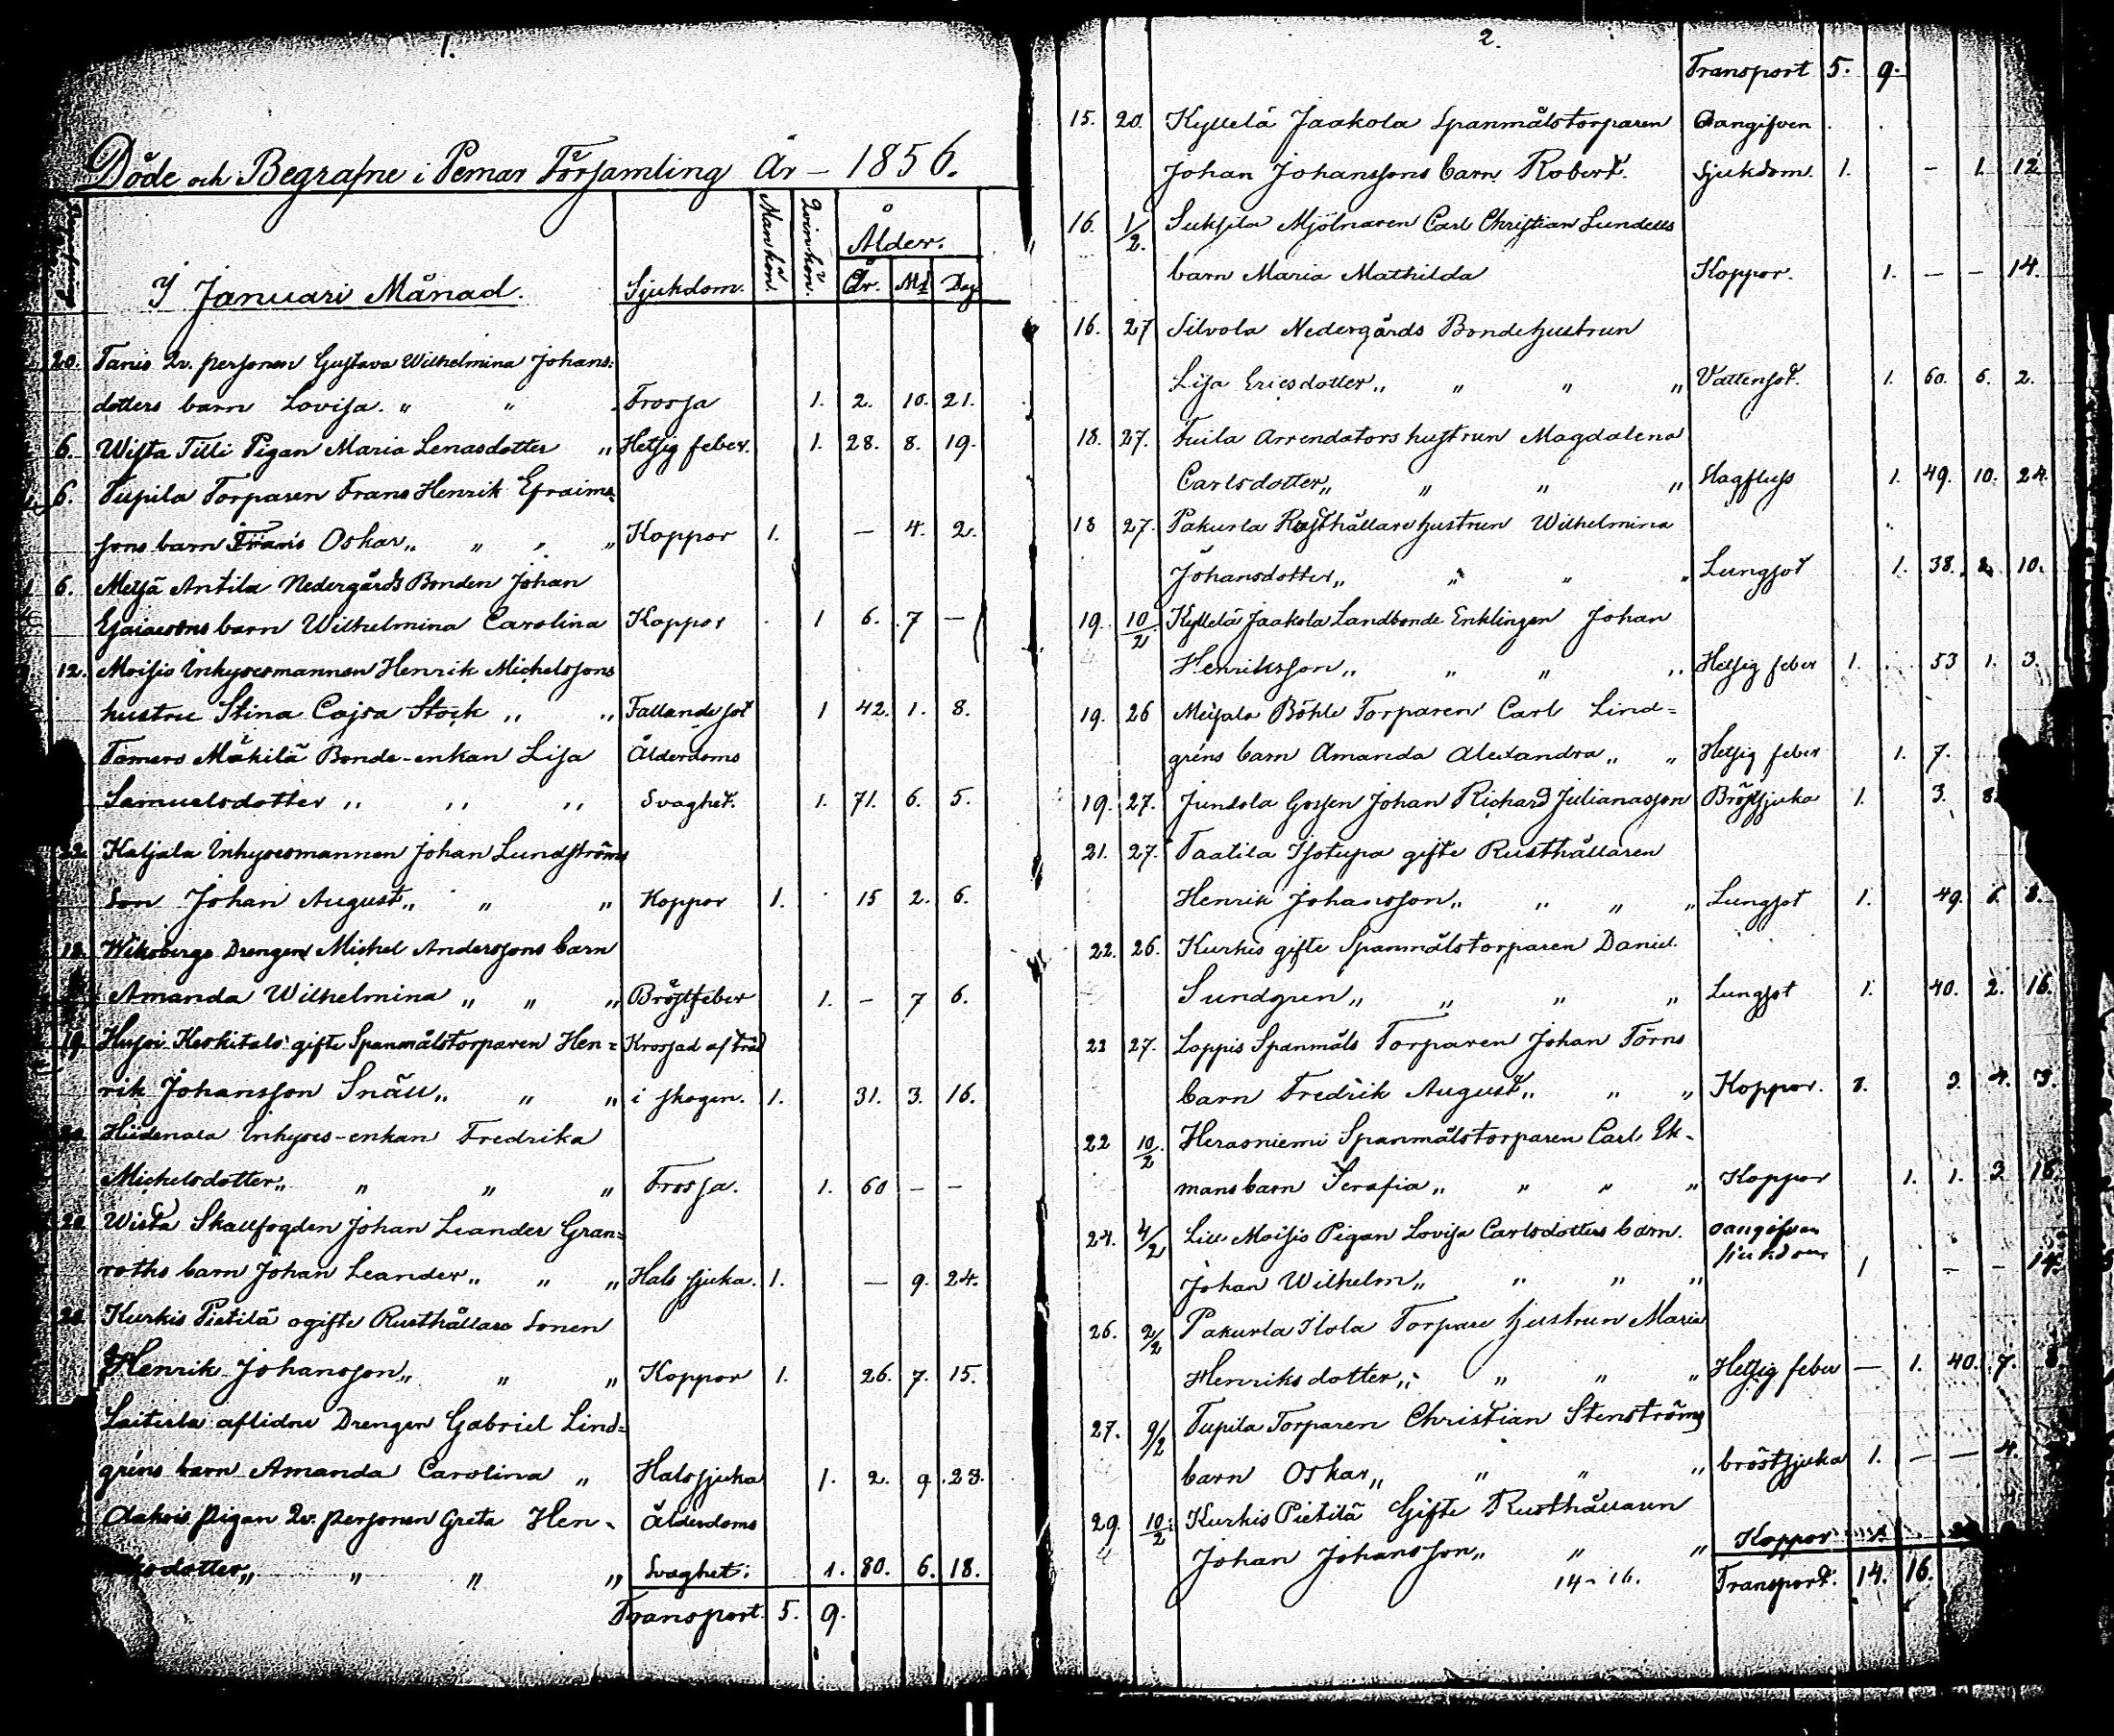 1.
Döde och Begrafne i Pemar Församling År – 1856.
I Januari Månad. Sjukdom. Mankön. Qvinkön. Ålder. År. Md Dag
20. Tanis Qv. personen Gustava Wilhelmina Johans=
dotters barn Lovisa. " " Frossa 1. 2. 10. 21.
6. Wista Tilli Pigan Maria Lenasdotter " Hetsig feber. 1. 28. 8. 19.
6. Tupila Torparen Frans Henrik Efraims
sons barn Frans Oskar " " " " Koppor 1. — 4. 2.
6. Metsä Antila Nedergårds Bonden Johan
Esaiasons barn Wilhelmina Carolina Koppor 1 6. 7 —
12. Moisio Inhysesmannen Henrik Michelssons
hustru Stina Cajsa Stock " " Fallandesot 1 42. 1. 8.
Tömers Mäkilä Bonde-enkan Lisa Ålderdoms
Samuelsdotter " " " Svaghet. 1. 71. 6. 5.
22. Kaljala Inhysesmannen Johan Lundströms
Son Johan August " " " Koppor 1. 15 2. 6.
18. Wiksbergs Drengen Michel Anderssons barn
Amanda Wilhelmina " " " Bröstfeber 1. – 7 6.
19. Huso Keskitalo gifte Spanmålstorparen Hen= Krossad af träd
rik Johansson Snäll " " " i skogen. 1. 31. 3. 16.
Inhyses-enkan Fredrika
Michelsdotter " " " " Frossa. 1. 60 – –
20. Wista Skallfogden Johan Leander Gran=
roths barn Johan Leander " " " Hals sjuka. 1. — 9. 24.
Kurkis Pietilä ogifte Rusthållare Sonen
Henrik Johansson " " " Koppor 1. 26. 7. 15.
aflidne Drengen Gabriel Lind=
gréns barn Amanda Carolina " Halssjuka 1. 2. 9. 23.
pigan Qv. personen Greta Hen- Ålderdoms
dotter " " " " Svaghet. 1. 80. 6. 18.
Transport. 5. 9.
2.
Transport 5. 9.
15. 20. Kyllelä Jaakola Spanmålstorparen Oangifven
Johan Johanssons barn Robert. Sjukdom. 1. – 1. 12
16. 1/2. Suksila Mjölnaren Carl Christian Lundells
barn Maria Mathilda Koppor. 1. – – 14.
16. 27 Silvola Nedergårds Bondehustrun
Lisa Ericsdotter " " " " Vattensot. 1. 60. 6. 2.
18. 27. Tuila Arrendators hustrun Magdalena
Carlsdotter " " " " Slagfluss 1. 49. 10. 24.
18 27. Pakurla Rusthållare hustrun Wilhelmina
Johansdotter " " " " Lungsot 1. 38. 2. 10.
19. 10/2. Kyllelä Jaakola Landbonde Enklingen Johan
Henriksson " " " " Hetsig feber 1. 53 1. 3.
19. 26 Böhle Torparen Carl Lind=
gréns barn Amanda Alexandra " " Hetsig feber 1. 7.
19. 27. Juntola Gossen Johan Richard Julianasson Bröstsjuka 1. 3. 8.
21. 27. Taatila Isotupa gifte Rusthållaren
Henrik Johansson " " " " Lungsot 1. 49. 6. 8.
22. 26. Kurkis gifte Spanmålstorparen Daniel
Sundgren " " " " Lungsot 1. 40. 2. 16.
22 27. Loppis Spanmåls Torparen Johan Törns
barn Fredrik August " " " Koppor. 1. 3. 4. 3.
22 10/2. Herasniemi Spanmålstorparen Carl Ek-
mans barn Serafia " " " " Koppor 1. 1. 3 16.
24. 4/2 Lill Moisio Pigan Lovisa Carlsdotters barn. oangifven
Johan Wilhelm " " " " sjukdom 1 – – 14.
26. 2/2 Pakurla Ilola Torpare hustrun Maria
Henriksdotter " " " " Hetsig feber — 1. 40. 7.
27. 9/2 Tupila Torparen Christian Stenströms
barn Oskar " " " " bröstsjuka 1. – — 4.
29. 10/2. Kurkis Pietilä Gifte Rusthållaren
Johan Johansson " " " Koppor
14 – 16. Transport. 14. 16.